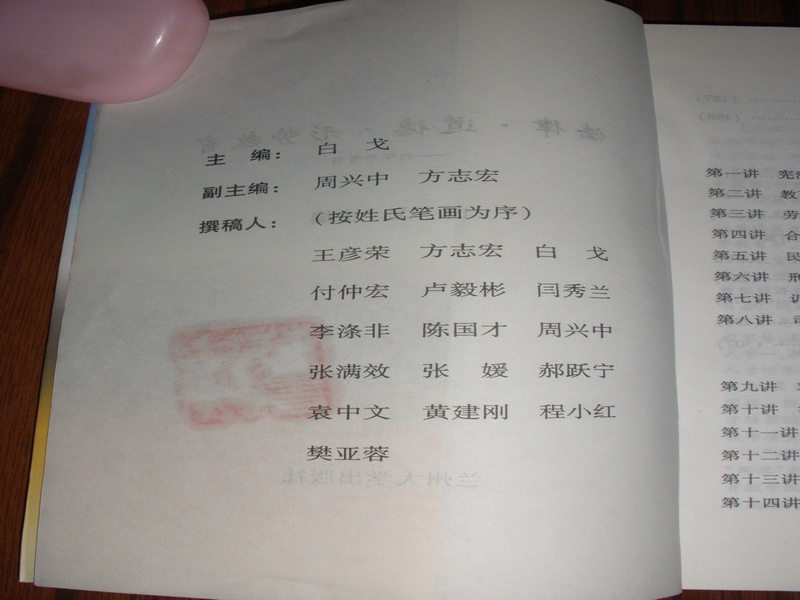 主 编： 白 戈
副主编： 周兴中 方志宏
撰稿人： （按姓氏笔画为序）
王彦荣 方志宏 白 戈
付仲宏 卢毅彬 闫秀兰
李涤非 陈国才 周兴中
张满效 张 媛 郝跃宁
袁中文 黄建刚 程小红
樊亚蓉
法律·道德·形势教育
兰州大学出版社
第一讲 宪
第二讲 教
第三讲 劳
第四讲 合
第五讲 民
第六讲 刑
第七讲
第八讲
第九讲
第十讲
第十一讲
第十二讲
第十三讲
第十四讲